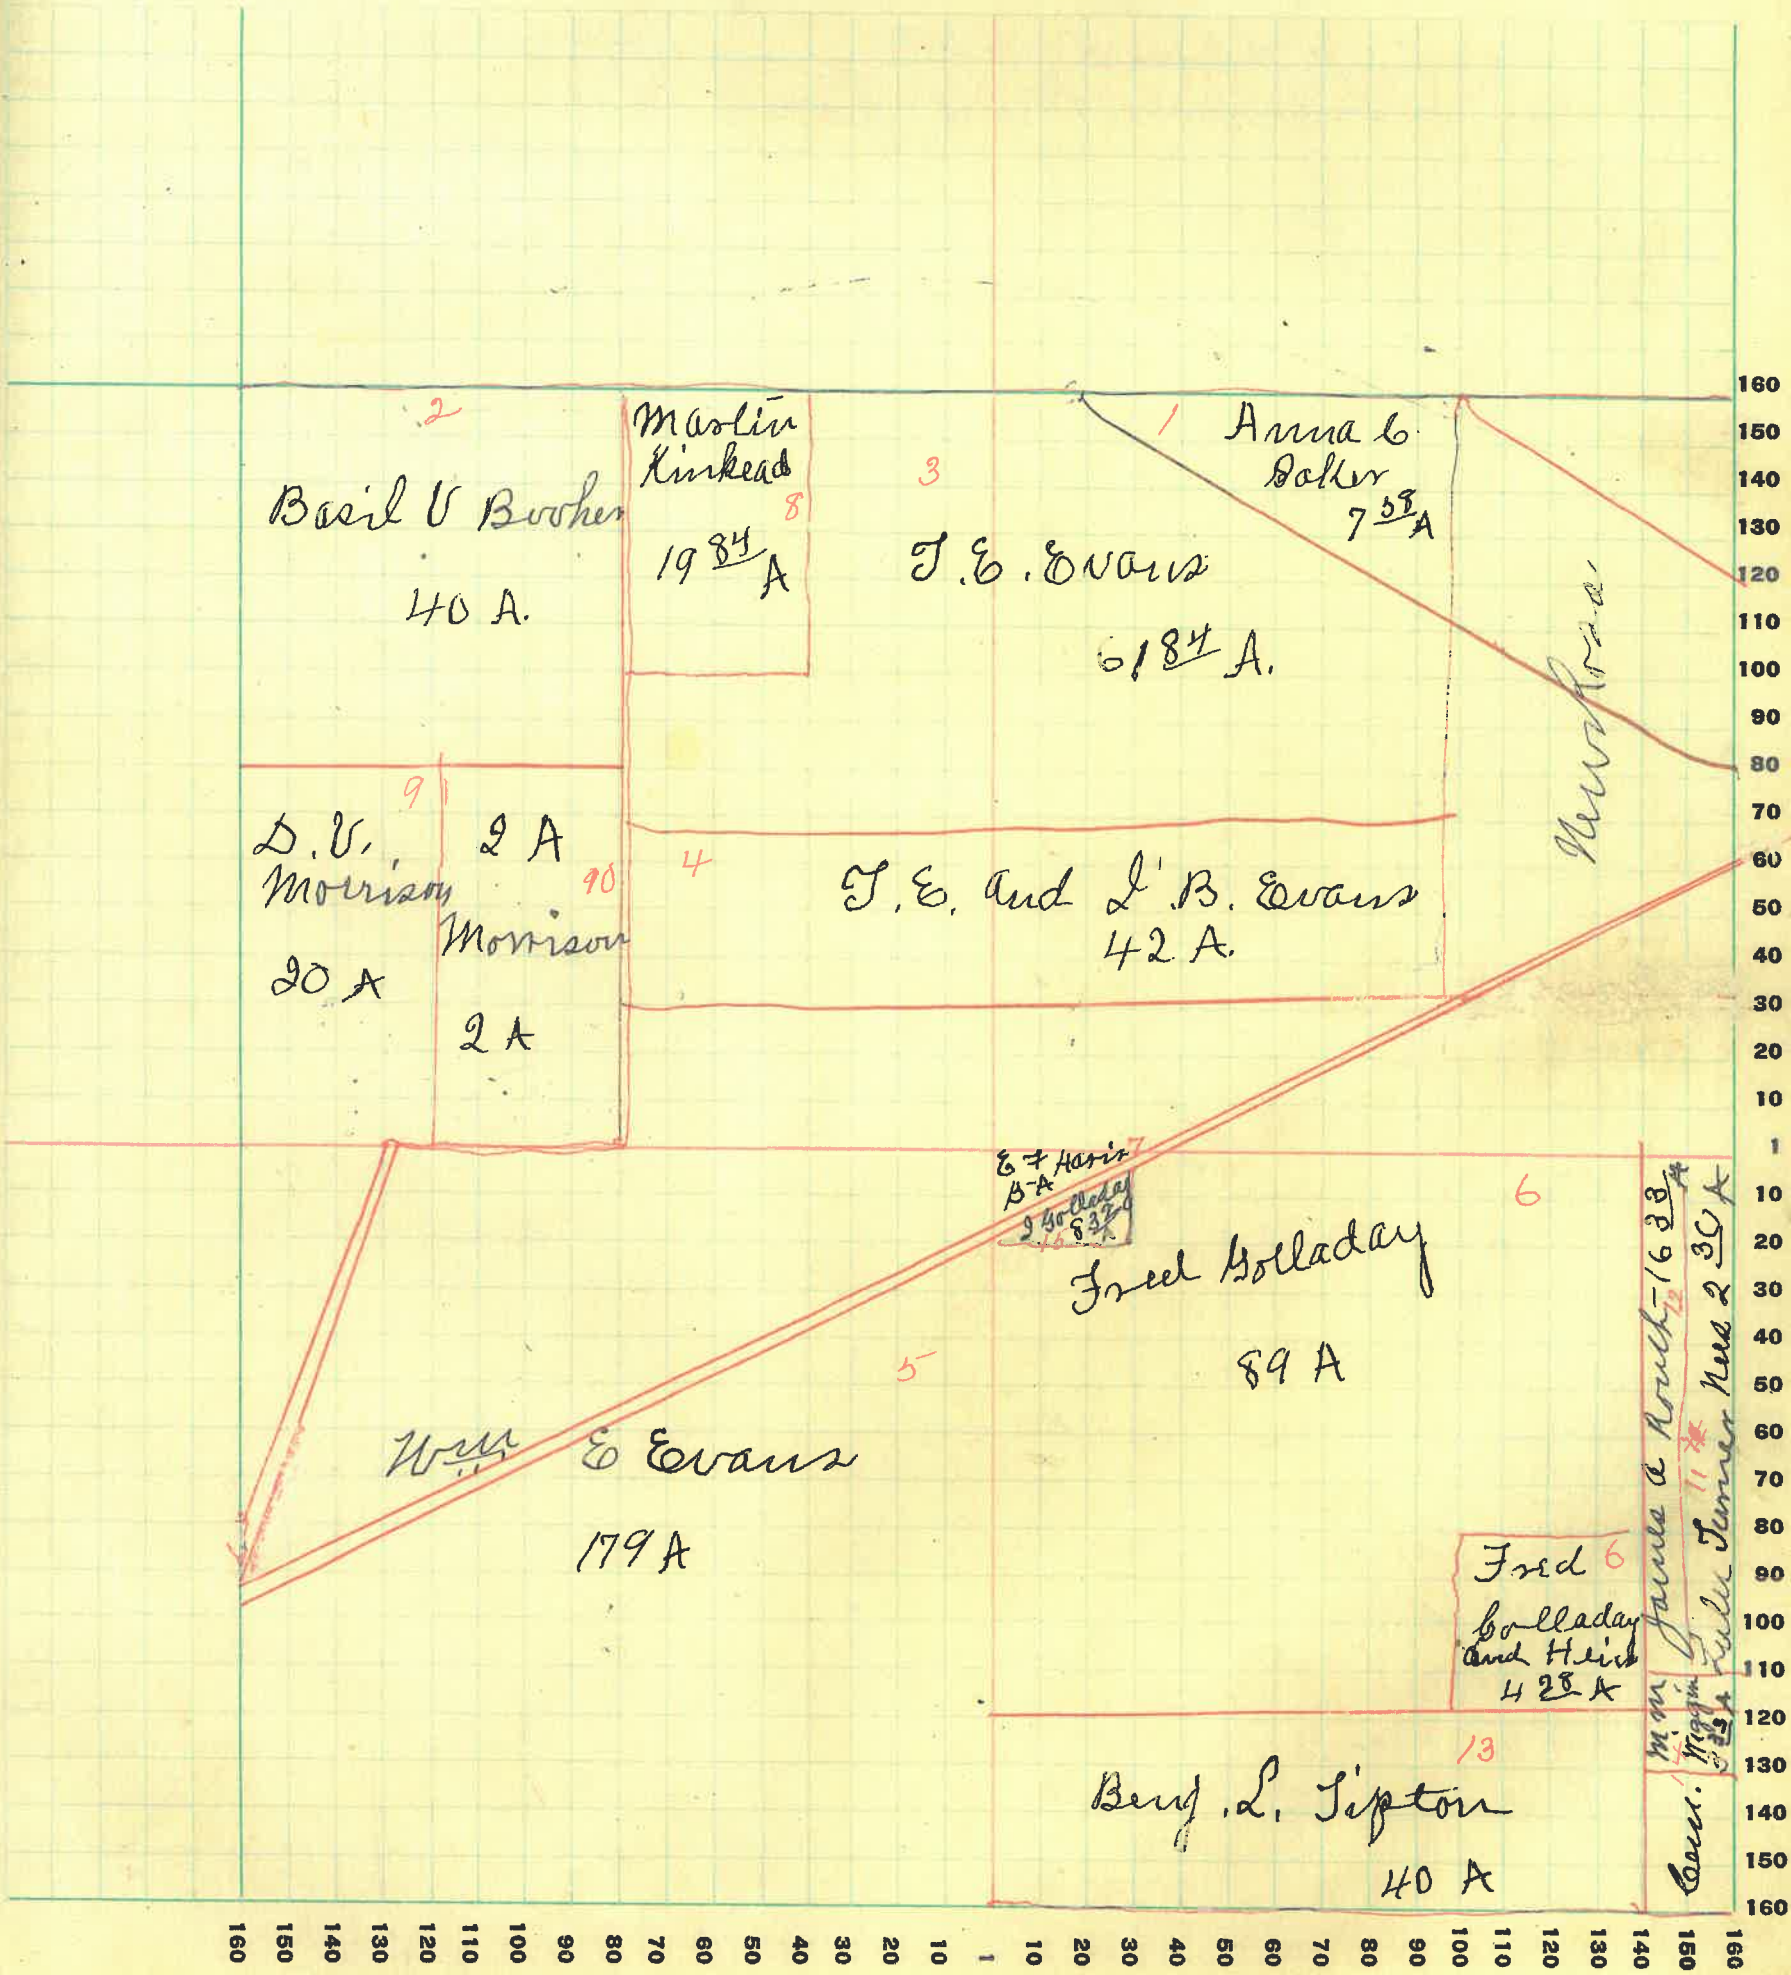 2
Basil V Booher
40 A.
Martin
Kinkead
8
19 84 A
3
T.E. Evans
61 84 A.
1
Anna C
Baker
7 58 A
New Road
9
D.V.
Morrison
20 A
2 A
90
Morrison
2 A
4
T.E. and I. B. Evans
42 A.
E F Haris 7
5-A
I Golladay
8 32 A
6
Fred Golladay
89 A
5
Wm E Evans
179 A
Fred 6
Golladay
and Heirs
4 28 A
James A Routh - 16 33 A
12
11
Lulu Turner Nees 2 30 A
M M
Wiggin
14
Cem.
13
Benj. L. Tipton
40 A
160
150
140
130
120
110
100
90
80
70
60
50
40
30
20
10
1
10
20
30
40
50
60
70
80
90
100
110
120
130
140
150
160
160 150 140 130 120 110 100 90 80 70 60 50 40 30 20 10 1 10 20 30 40 50 60 70 80 90 100 110 120 130 140 150 160